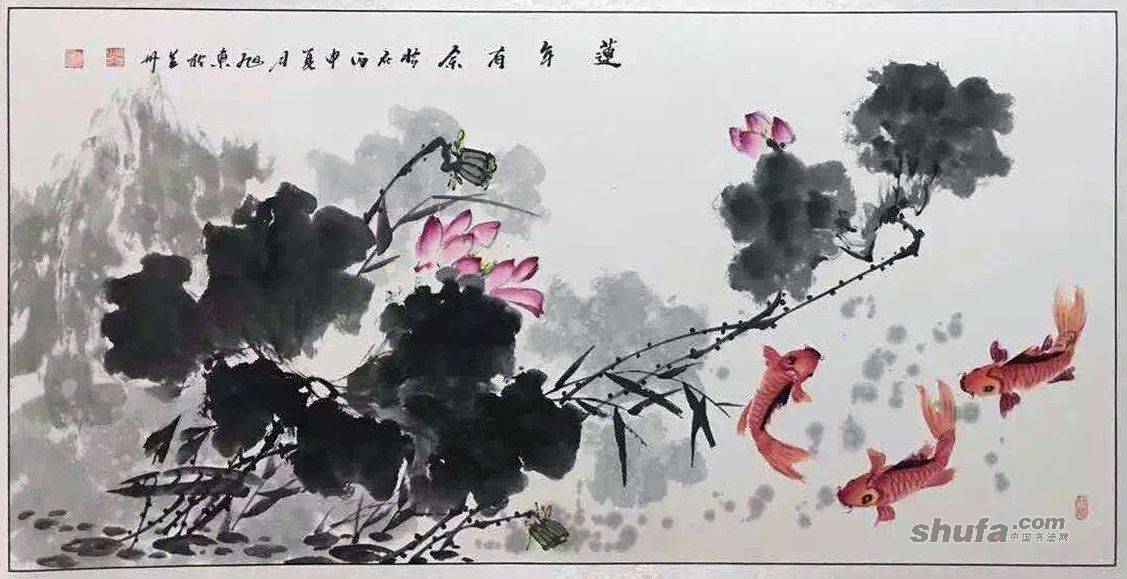 蓮年有余 時在丙申夏月旭東於兰州
shufa.com
中国书法网